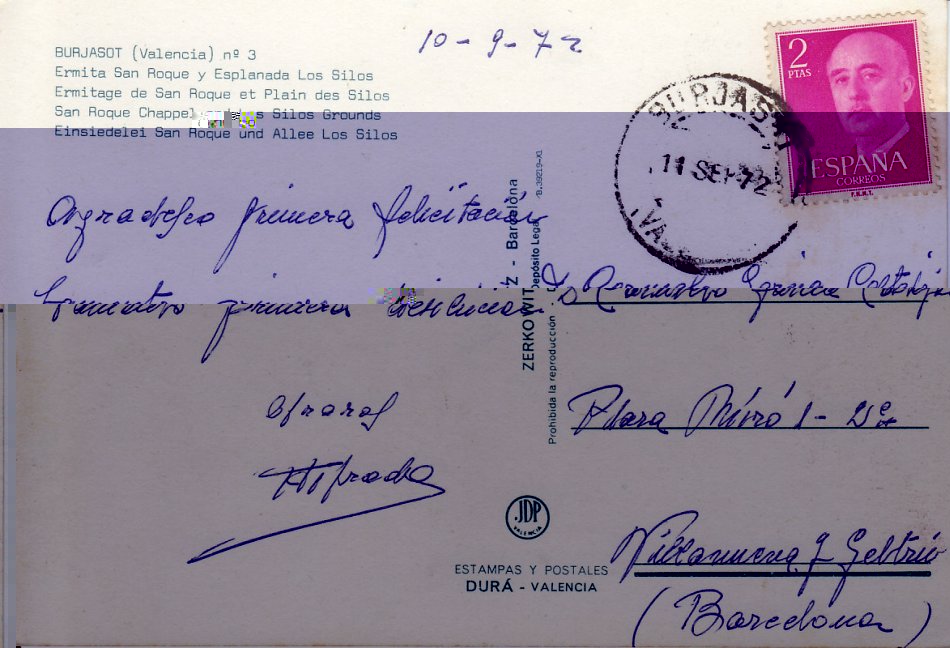 10-9-72
BURJASOT (Valencia) nº 3
Ermita San Roque y Esplanada Los Silos
Ermitage de San Roque et Plain des Silos
San Roque Chappel Silos Grounds
Einsiedelei San Roque und Allee Los Silos
2
PTAS
ESPAÑA
CORREOS
F.N.M.T.
BURJASOT
11 SEP 72
Agradezco primera felicitación
primera
Plaza Miró 1-
Villanueva y Geltrú
(Barcelona)
B. 39219-XI
Depósito Legal
ZERKOWITZ - Barcelona
Prohibida la reproducción
JDP
VALENCIA
ESTAMPAS Y POSTALES
DURÁ - VALENCIA